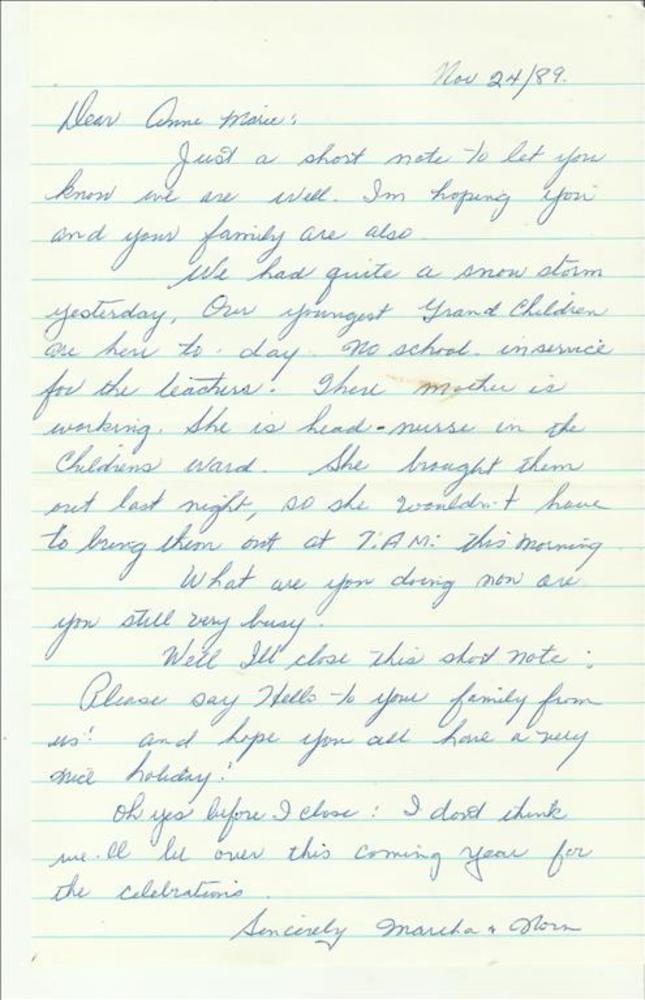 Nov 24/89.
Dear Anne Marie:
Just a short note to let you
know we are well. Im hoping you
and your family are also
We had quite a snow storm
yesterday, Our youngest Grand Children
are here to-day. No school. inservice
for the teachers. There mother is
working. She is head-nurse in the
Childrens ward. She brought them
out last night, so she wouldn't have
to bring them out at 7.A.M: this morning
What are you doing now are
you still very busy.
Well I'll close this short note:
Please say Hello to your family from
us! and hope you all have a very
nice holiday!
Oh yes before I close: I don't think
we'll be over this coming year for
the celebrations.
Sincerely Martha & Norm